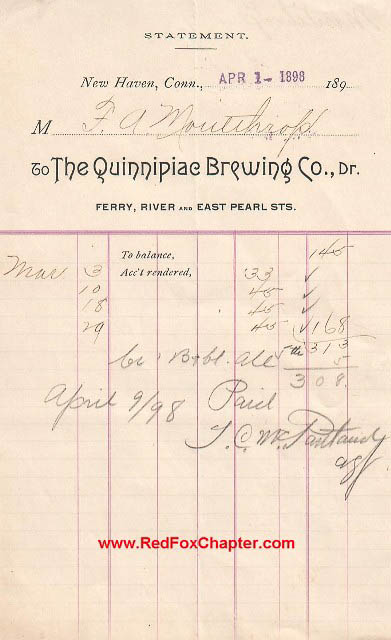 STATEMENT.
New Haven, Conn., APR 1- 1898 189
M F. A
To The Quinnipiac Brewing Co., Dr.
FERRY, RIVER AND EAST PEARL STS.
To balance, 145
Mar 3 Acc't rendered, 33 ✓
10 45 ✓
18 45 ✓
29 45 ✓ 168
313
Cr 1 Bbl. Ale 5
308.
April 9/98 Paid
T. C. Mc
agt
www.RedFoxChapter.com